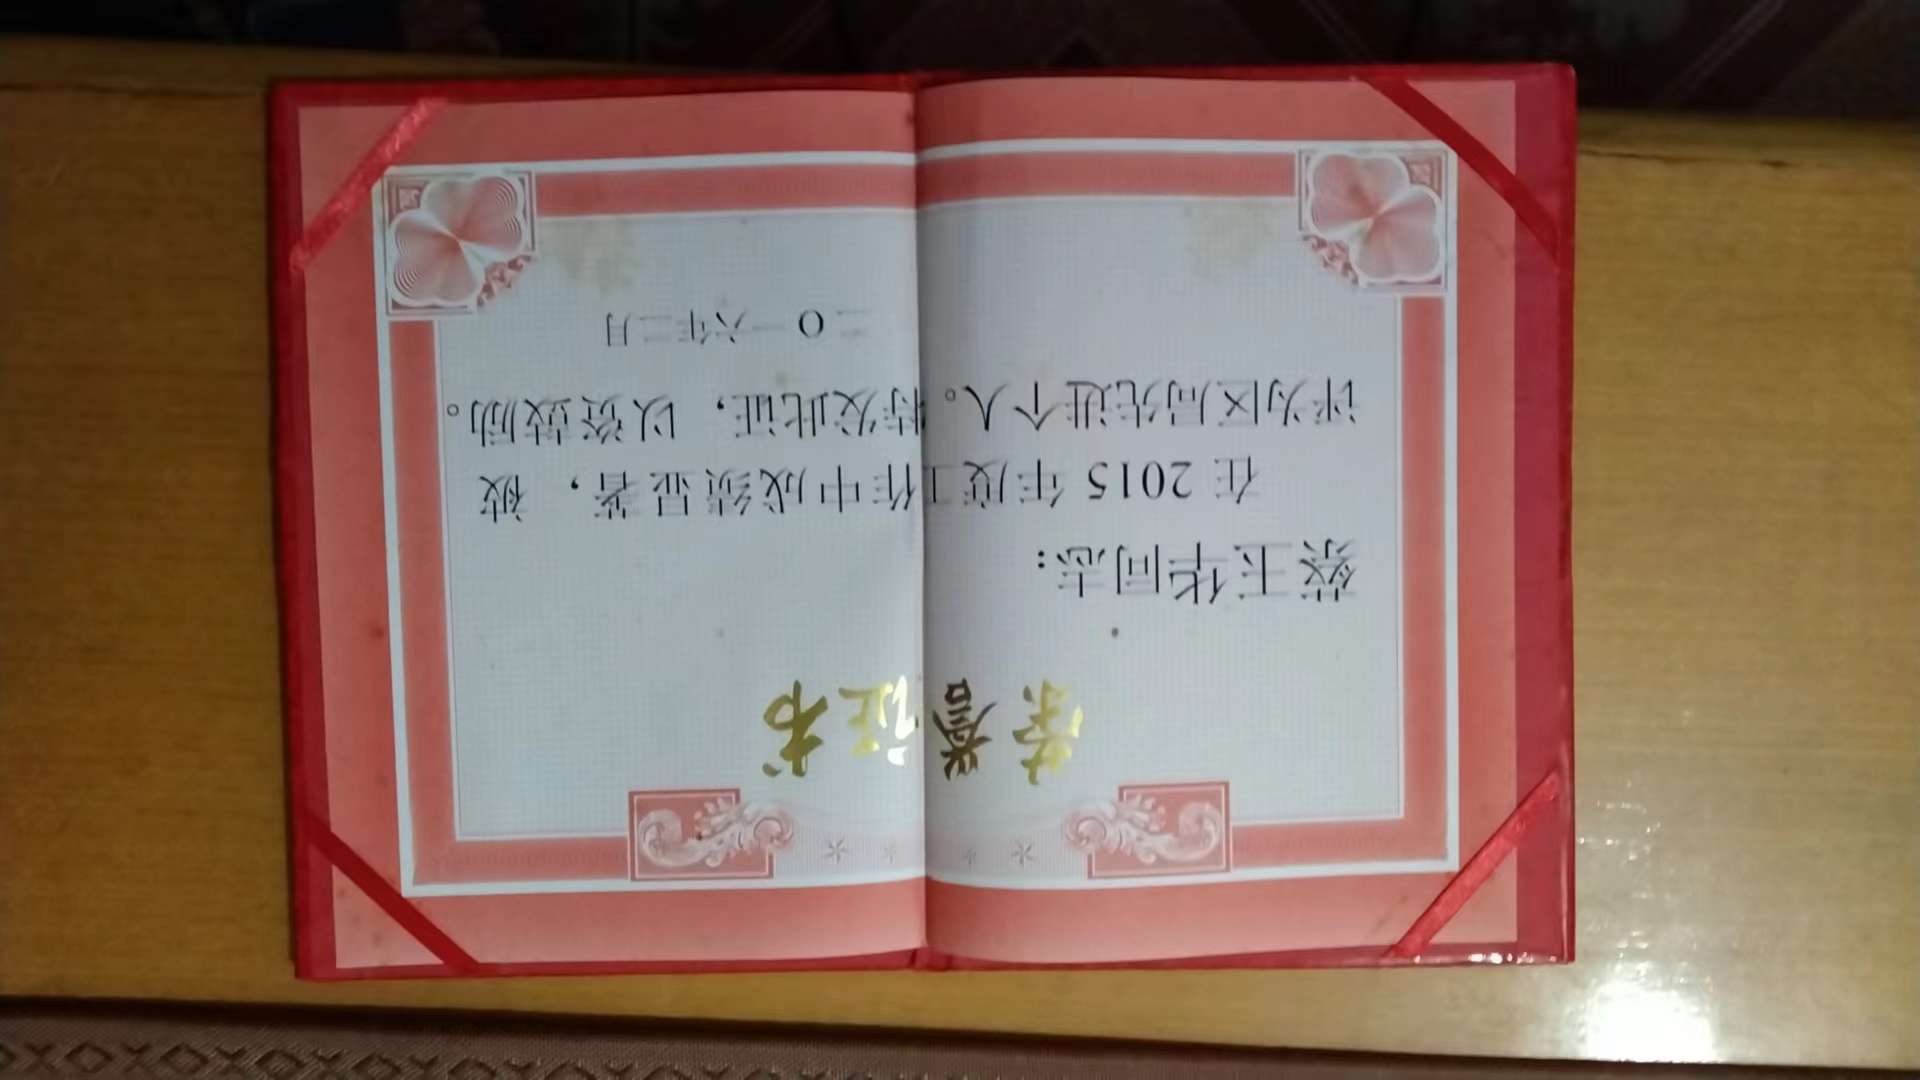 荣誉证书
蔡玉华同志：
在 2015 年度工作中成绩显著，被
评为区局先进个人。特发此证，以资鼓励。
二O一六年二月